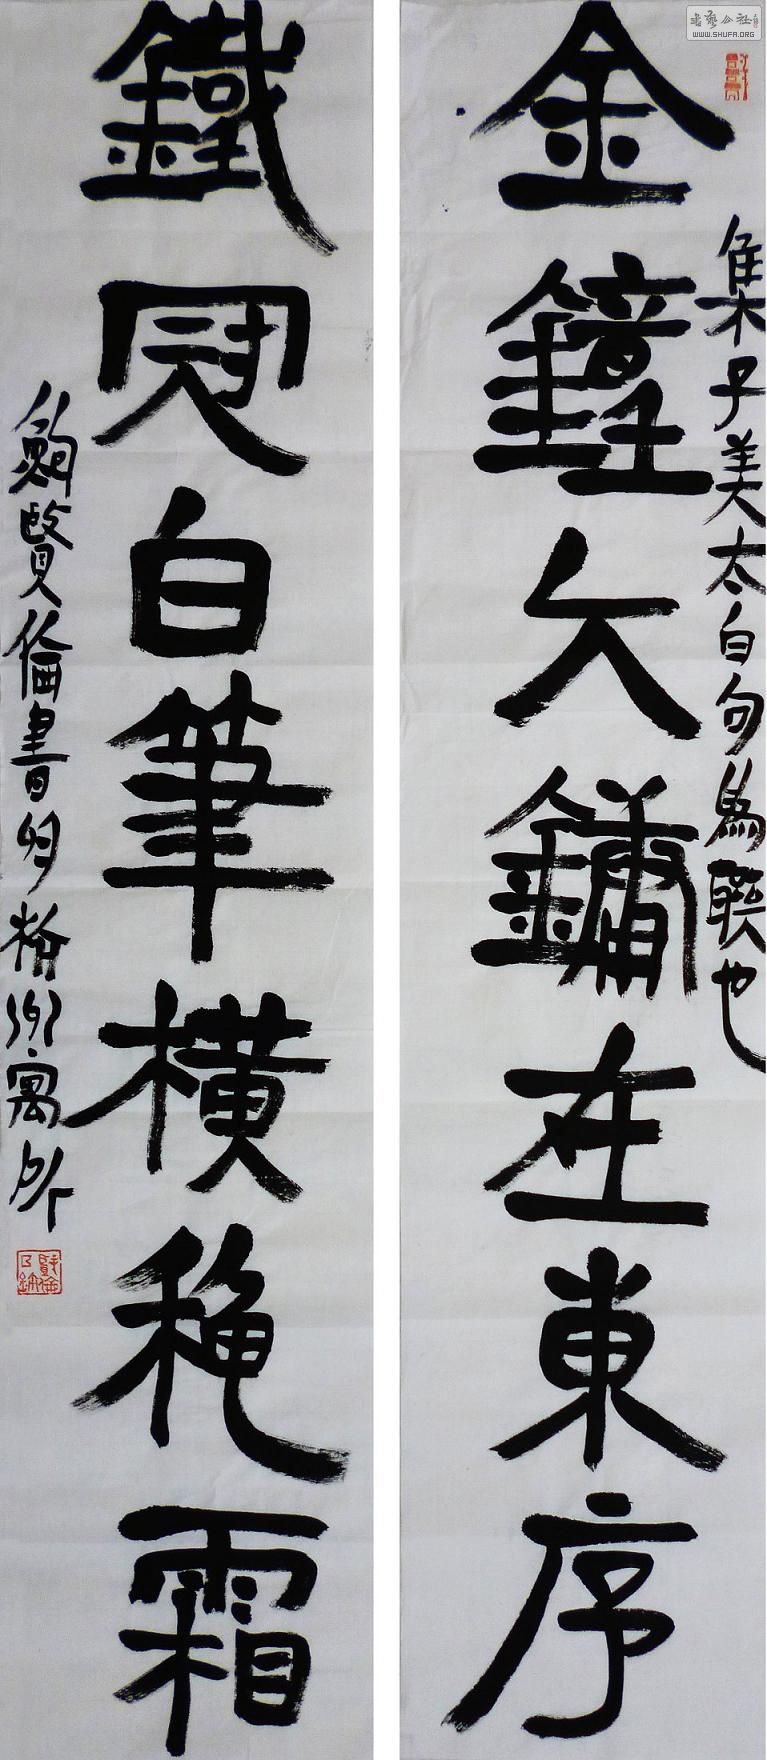 集子美太白句為聯也
金鐘大鏞在東序
鐵冠白筆橫秋霜
鮑賢倫書於杭州寓所
書藝公社
WWW.SHUFA.ORG